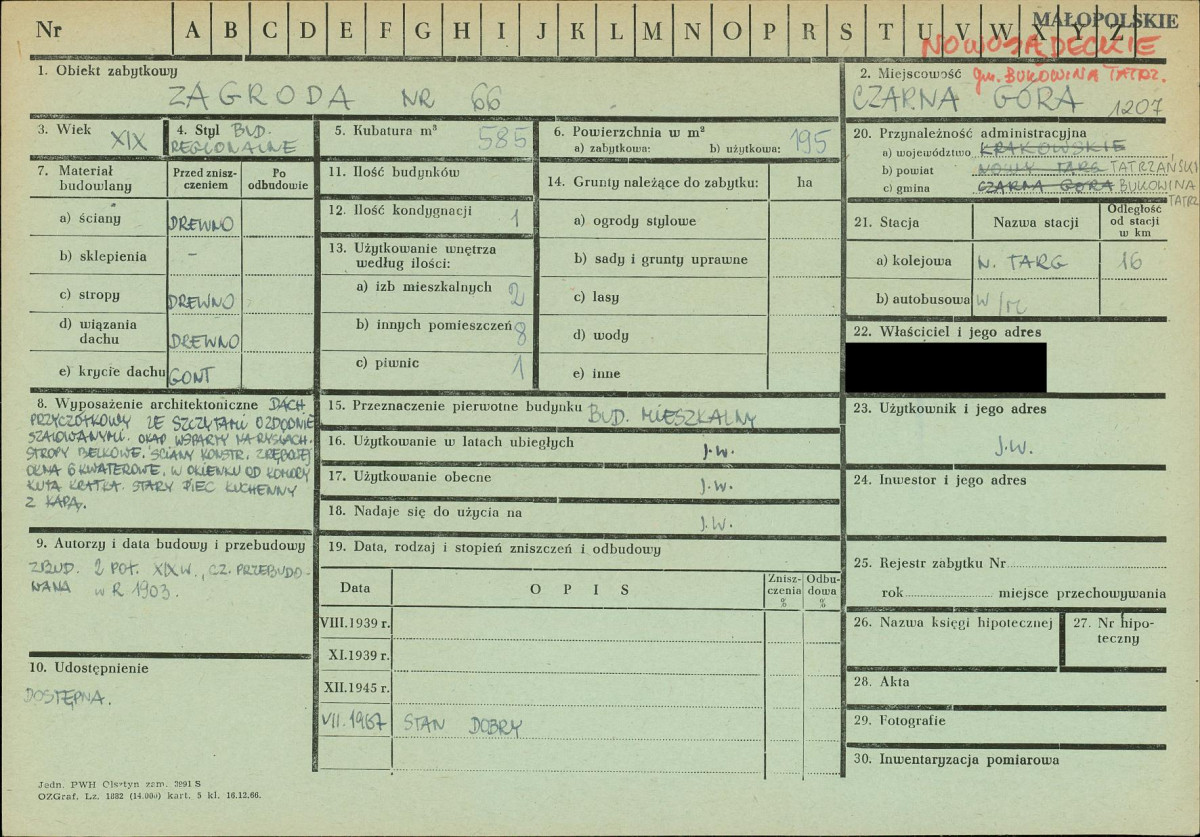 Nr A B C D E F G H I J K L M N O P R S T U V W X Y Z
MAŁOPOLSKIE
NOWOSĄDECKIE
1. Obiekt zabytkowy
ZAGRODA NR 66
2. Miejscowość gm. BUKOWINA TATRZ.
CZARNA GÓRA 1207
3. Wiek XIX
4. Styl BUD.
REGIONALNE
5. Kubatura m³ 585
6. Powierzchnia w m²
a) zabytkowa: b) użytkowa: 195
7. Materiał
budowlany
Przed znisz-
czeniem
Po
odbudowie
a) ściany DREWNO
b) sklepienia -
c) stropy DREWNO
d) wiązania
dachu DREWNO
e) krycie dachu GONT
8. Wyposażenie architektoniczne DACH
PRZYCZÓŁKOWY ZE SZCZYTAMI OZDOBNIE
SZALOWANYMI. OKAP WSPARTY NA RYSIACH.
STROPY BELKOWE. ŚCIANY KONSTR. ZRĘBOWEJ
OKNA 6 KWATEROWE. W OKIENKU OD KOMORY
KUTA KRATKA. STARY PIEC KUCHENNY
Z KAPĄ.
9. Autorzy i data budowy i przebudowy
ZBUD. 2 POŁ. XIX W., CZ. PRZEBUDO-
WANA W R 1903.
10. Udostępnienie
DOSTĘPNA.
11. Ilość budynków
12. Ilość kondygnacji 1
13. Użytkowanie wnętrza
według ilości:
a) izb mieszkalnych 2
b) innych pomieszczeń 8
c) piwnic 1
14. Grunty należące do zabytku: ha
a) ogrody stylowe
b) sady i grunty uprawne
c) lasy
d) wody
e) inne
15. Przeznaczenie pierwotne budynku BUD. MIESZKALNY
16. Użytkowanie w latach ubiegłych J.W.
17. Użytkowanie obecne J.W.
18. Nadaje się do użycia na J.W.
19. Data, rodzaj i stopień zniszczeń i odbudowy
Data OPIS
Znisz-
czenia
%
Odbu-
dowa
%
VIII.1939 r.
XI.1939 r.
XII.1945 r.
VII.1967 STAN DOBRY
20. Przynależność administracyjna
a) województwo KRAKOWSKIE
b) powiat NOWY TARG TATRZAŃSKI
c) gmina CZARNA GÓRA BUKOWINA
TATRZ
21. Stacja Nazwa stacji
Odległość
od stacji
w km
a) kolejowa N. TARG 16
b) autobusowa W/M
22. Właściciel i jego adres
23. Użytkownik i jego adres
J.W.
24. Inwestor i jego adres
25. Rejestr zabytku Nr
rok miejsce przechowywania
26. Nazwa księgi hipotecznej
27. Nr hipo-
teczny
28. Akta
29. Fotografie
30. Inwentaryzacja pomiarowa
Jedn. PWH Olsztyn zam. 3991 S
OZGraf. Lz. 1882 (14.000) kart. 5 kl. 16.12.66.